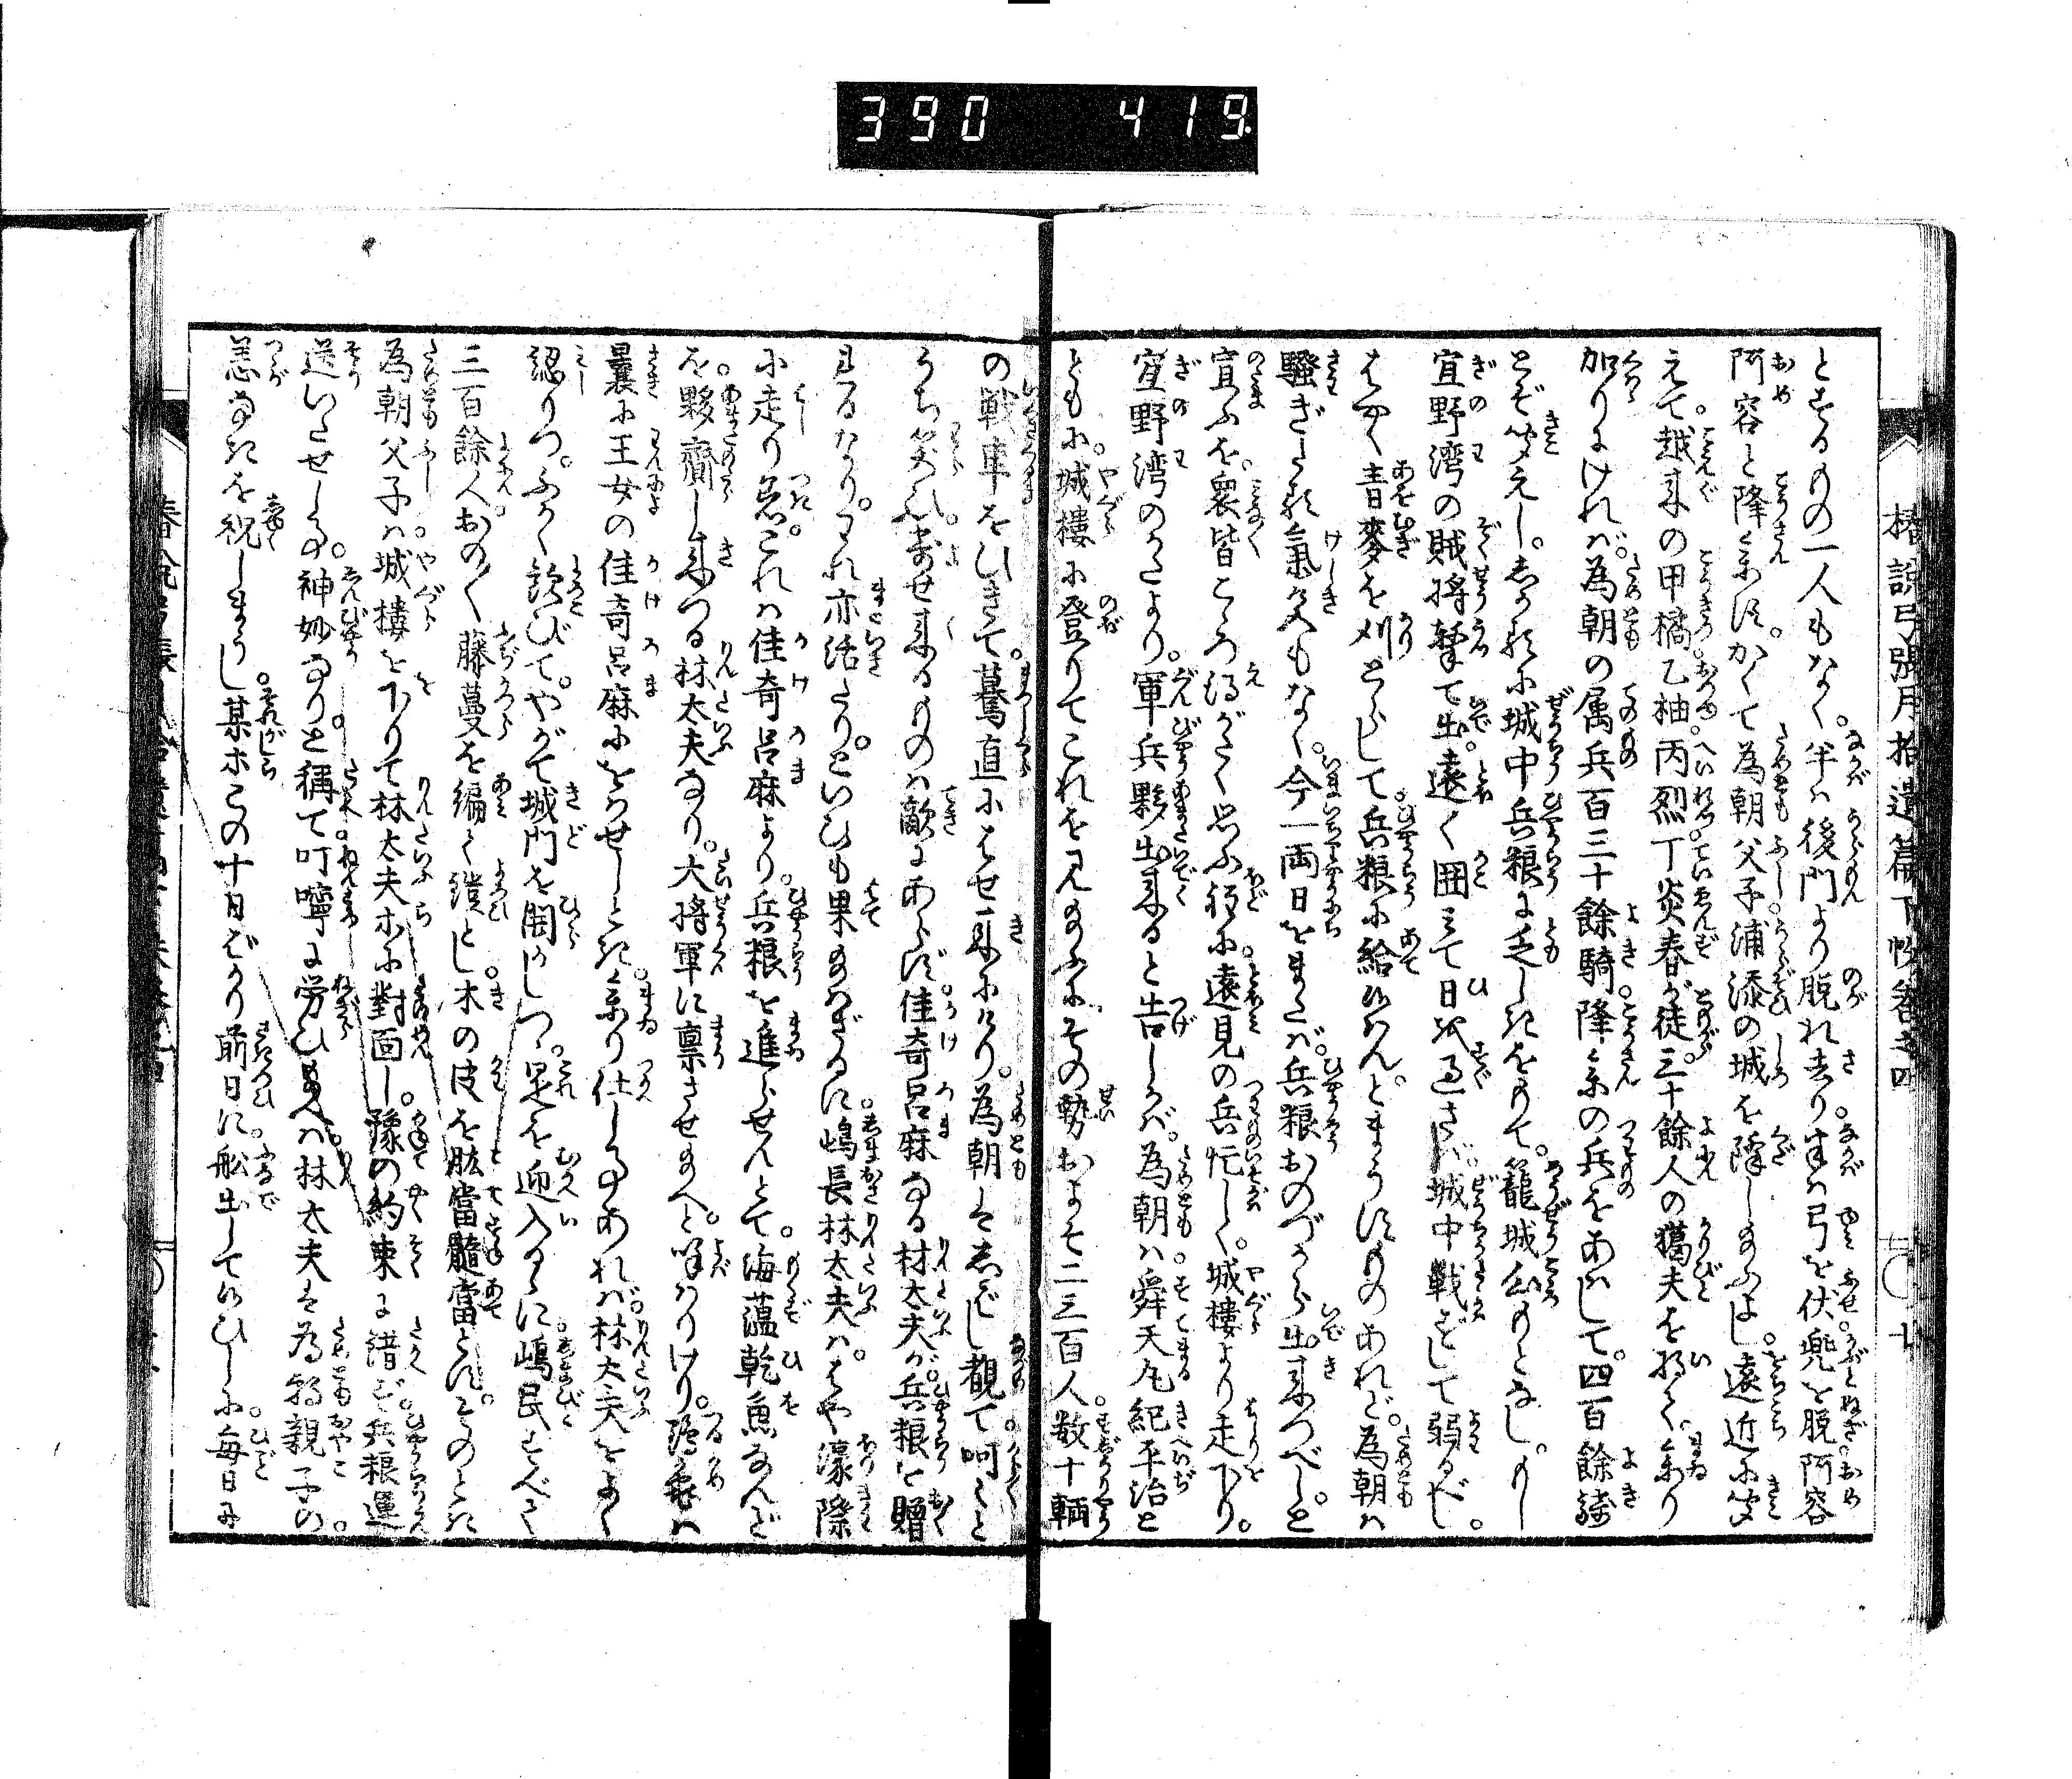 390 419
椿説弓張月拾遺篇下帙巻之四
とするもの一人もなく。半は後門より脱れ去り。半は弓を伏兜を脱。阿容
阿容と降参す。かくて為朝父子浦添の城を降し給ふよし。遠近に聞
えて。越来の甲橘。乙柚。丙烈。丁炎春が徒。三十餘人の猟夫を将て。参り
加りければ。為朝の属兵百三十餘騎。降参の兵をあはして。四百餘騎
とぞ聞えし。しかるに城中兵粮に乏しきをもて。籠城
宜野湾の賊将替て出。遠く囲みて日を過さば。城中戦ずして弱るべし。
はやく青麥を刈とらして。兵粮に給給はん。とまうすものあれど。為朝は
騒ぎたる氣色もなく。今一両日をまたば。兵粮おのづから出来つべし。と
宣ふを。衆皆こゝろ得がたく思ふ程に。遠見の兵忙しく。城樓より走下り。
宜野湾のかたより。軍兵夥出来ると告しかば。為朝は。舜天丸紀平治と
ともに。城樓に登りてこれを見給ふに。その勢およそ二三百人。数十輛
の戦車をひきて。驀直にはせ来にけり。為朝はしばし観て。呵々と
うち笑ひ。寄せ来るものは敵にあらず。佳奇呂麻なる林太夫が。兵粮を贈
れるなり。われ亦活たり。といひも果給はざるに。嶋長林太夫は。はや濠際
に走り着。これは佳奇呂麻より。兵粮を進らせんとて。海薀乾魚なんど
を。夥齎し来つる林太夫なり。大将軍に禀させ給へ。と呼はりけり。鶴亀は
曩に王女の佳奇呂麻にをはせしとき。参り仕しことあれば。林太夫をよく
認りつ。ふかく歓びて。やがて城門を開かしつ。是を迎入るゝに。嶋民すべて
三百餘人。おの〳〵藤蔓を編て鎧とし。木の皮を肱當髄當とす。そのとき
為朝父子は。城樓を下りて林太夫ホに對面し。豫の約束に違ず。兵粮運
送いたせしこと。神妙なり。と稱て叮嚀に労ひ給へば。林太夫は為朝親子の
恙なきを祝しまうし。某ホこの十日ばかり前日に。舩出して候ひしに。毎日に